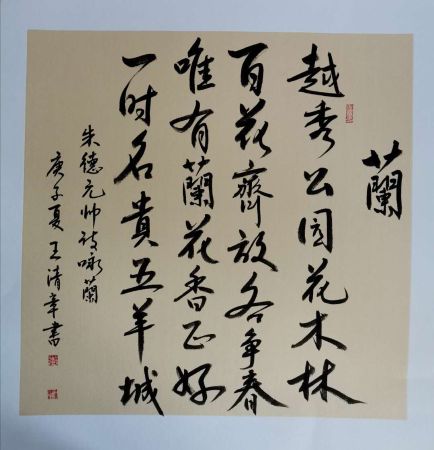 蘭
越秀公园花木林
百花齊放各争春
唯有蘭花香正好
一时名貴五羊城
朱德元帅诗咏蘭
庚子夏王清章書